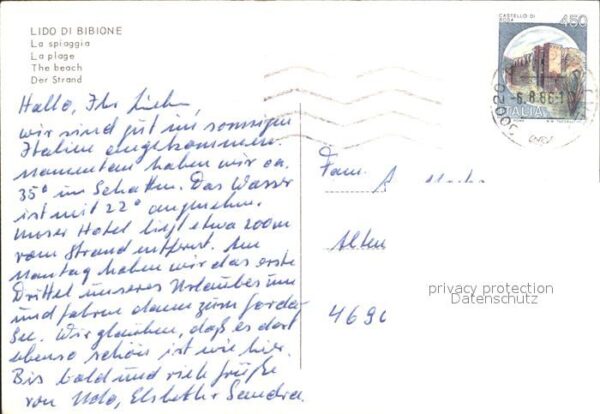 LIDO DI BIBIONE
La spiaggia
La plage
The beach
Der Strand
CASTELLO DI
450
-6.8.86-
ITALIA
Hallo, Ihr Lieben,
wir sind gut im sonnigen
Italien angekommen.
Momentan haben wir ca.
35° im Schatten. Das Wasser
ist mit 22° angenehm.
Unser Hotel liegt etwa 200m
vom Strand entfernt. Am
Montag haben wir das erste
Drittel unseres Urlaubes um
und fahren dann zum Garda-
See. Wir glauben, daß es dort
ebenso schön ist wie hier.
Bis bald und viele Grüße
von Udo, Elsbeth + Sandra.
Fam. A.
Alten
469
privacy protection
Datenschutz